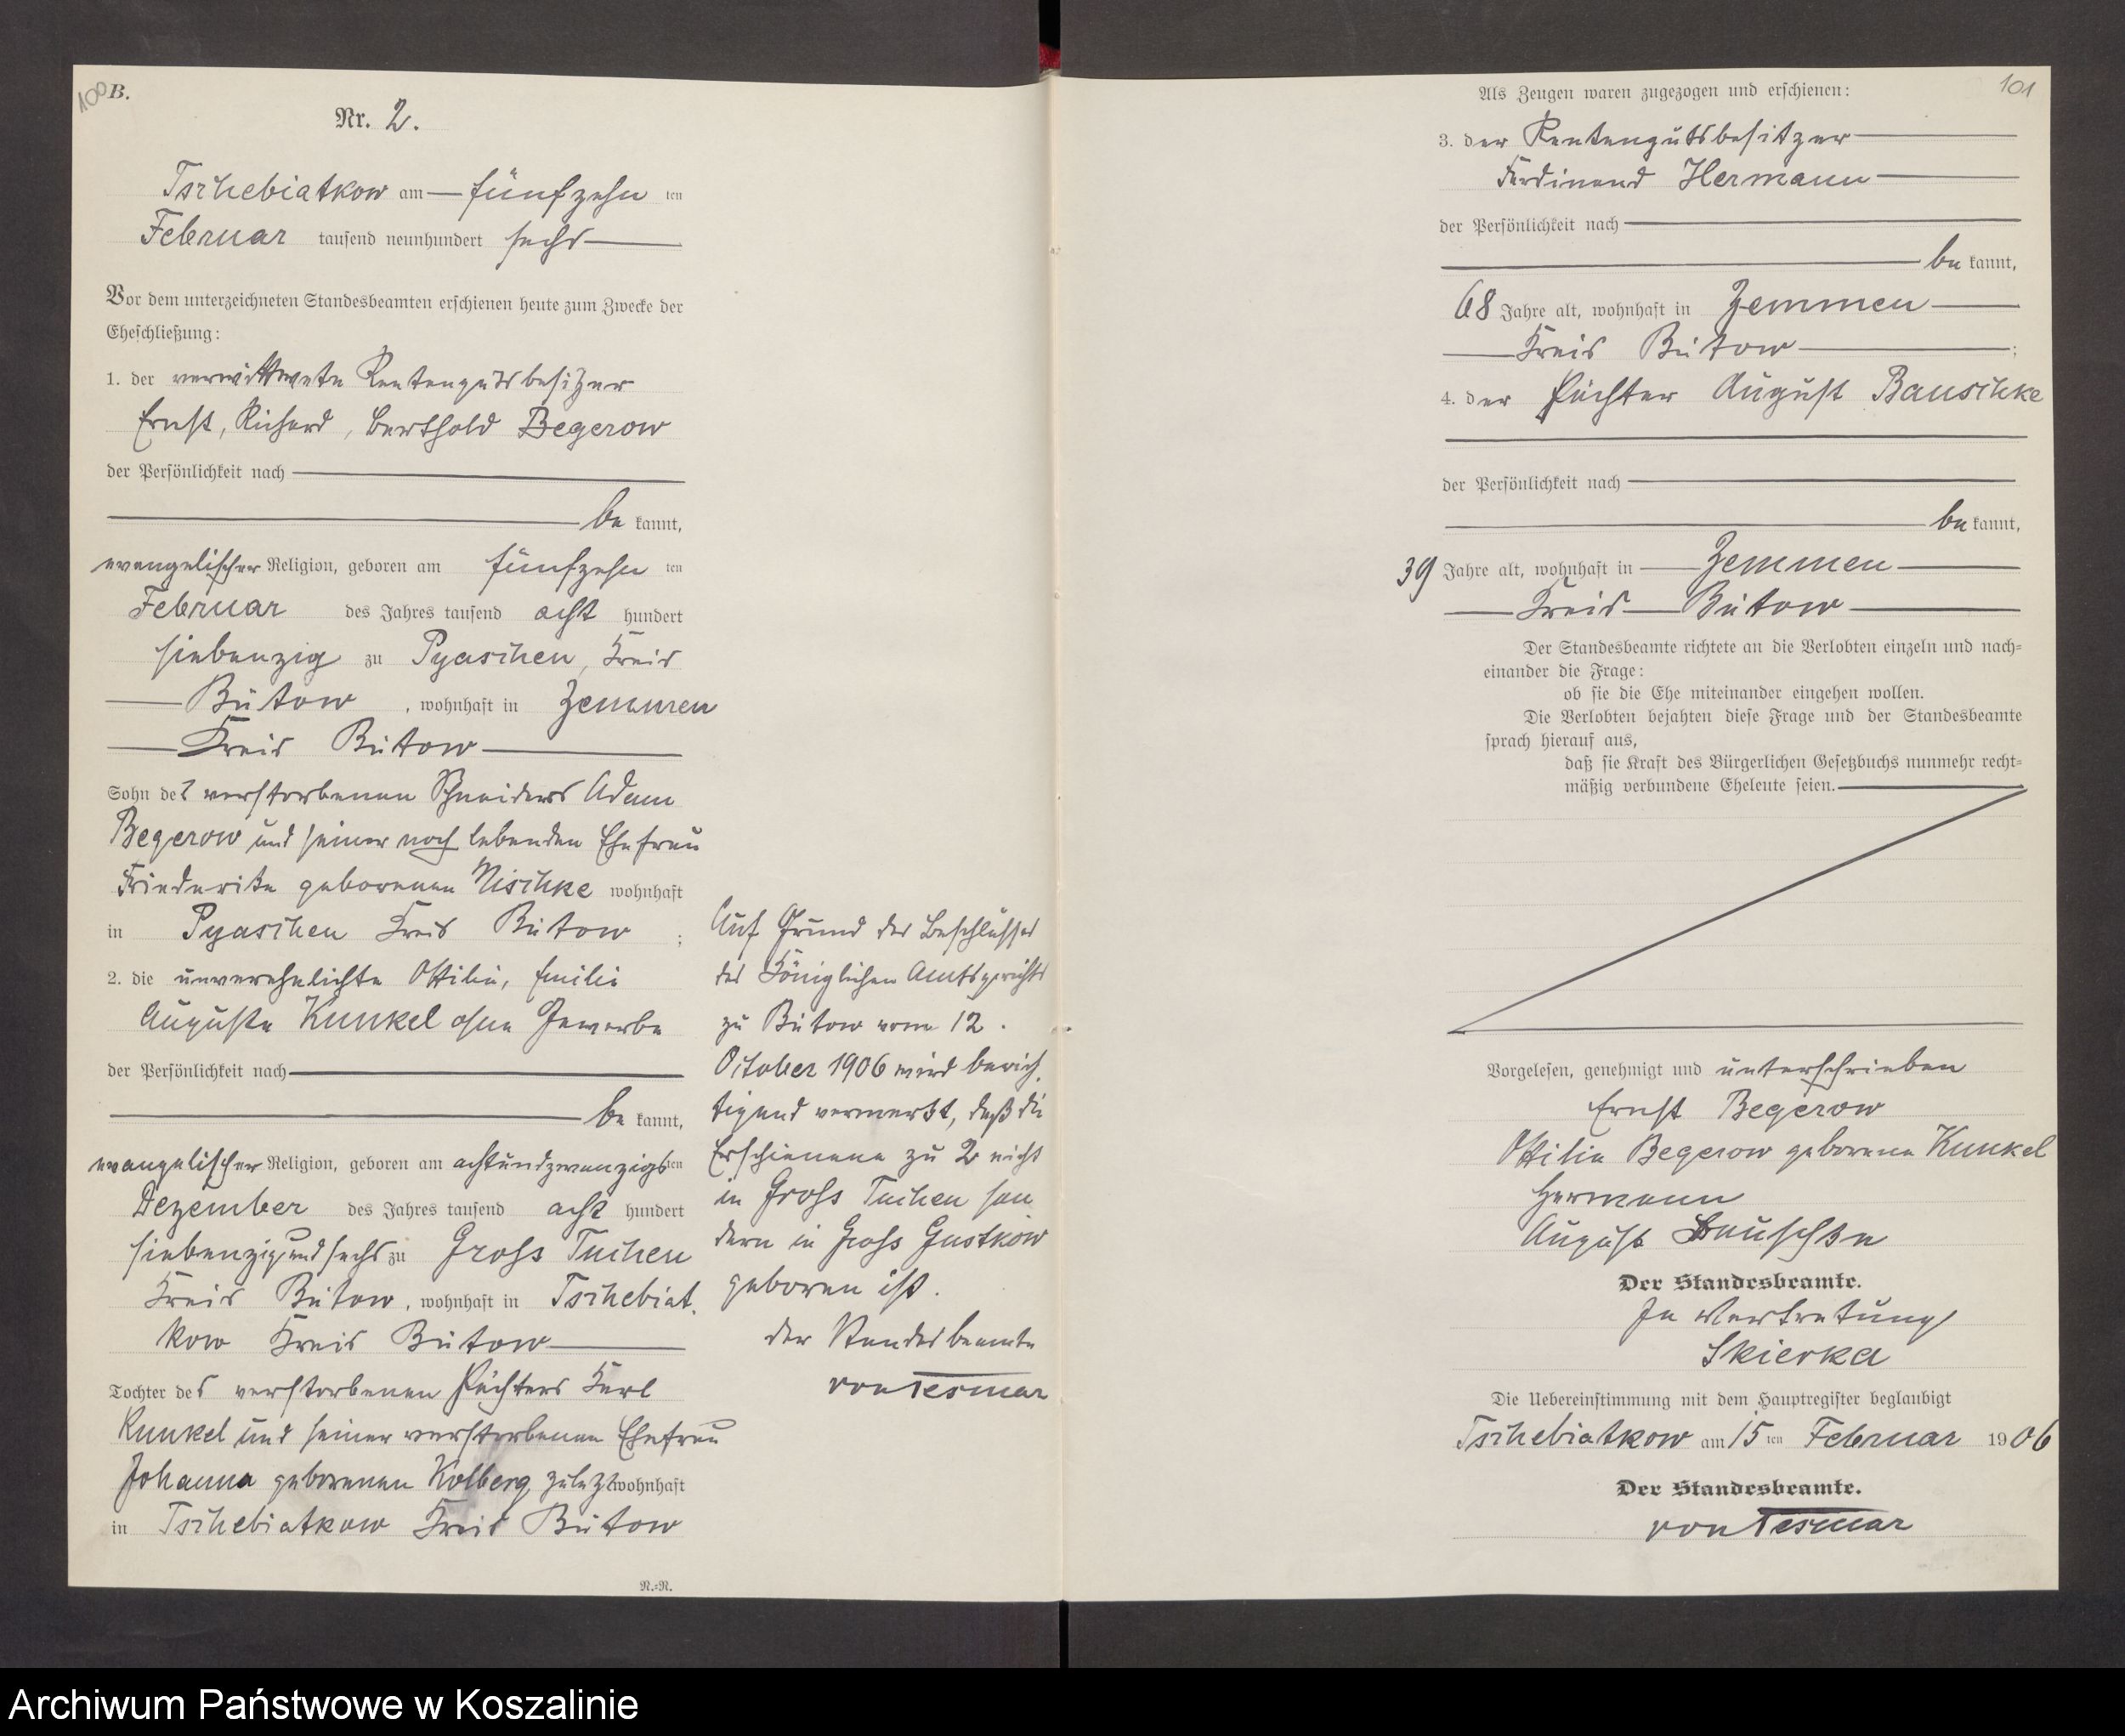 100
B.
Nr. 2.
Tschebiatkow am fünfzehn ten
Februar tausend neunhundert sechs
Vor dem unterzeichneten Standesbeamten erschienen heute zum Zwecke der
Eheschließung:
1. der verwittwete Rentengutsbesitzer
Ernst, Richard, Berthold Begerow
der Persönlichkeit nach
be kannt,
evangelischer Religion, geboren am fünfzehn ten
Februar des Jahres tausend acht hundert
siebenzig zu Pyaschen, Kreis
Bütow, wohnhaft in Zemmen
Kreis Bütow
Sohn des verstorbenen Schneiders Adam
Begerow und seiner noch lebenden Ehefrau
Friederike geborenen Nischke wohnhaft
in Pyaschen Kreis Bütow ;
2. die unverehelichte Ottilie, Emilie
Auguste Kunkel ohne Gewerbe
der Persönlichkeit nach
be kannt,
evangelischer Religion, geboren am achtundzwanzigsten
Dezember des Jahres tausend acht hundert
siebenzig und sechs zu Gross Tuchen
Kreis Bütow, wohnhaft in Tschebiat.
kow Kreis Bütow
Tochter des verstorbenen Pächters Karl
Kunkel und seiner verstorbenen Ehefrau
Johanna geborenen Kolberg zuletzt wohnhaft
in Tschebiatkow Kreis Bütow
N.=N.
Auf Grund des Beschlusses
des Königlichen Amtsgerichts
zu Bütow vom 12.
October 1906 wird berich.
tigend vermerkt, daß die
Erschienene zu 2 nicht
in Gross Tuchen son
dern in Gross Gustkow
geboren ist.
der Standesbeamte
von Tesmar
101
Als Zeugen waren zugezogen und erschienen:
3. der Rentengutsbesitzer
Ferdinand Hermann
der Persönlichkeit nach
be kannt,
68 Jahre alt, wohnhaft in Zemmen
Kreis Bütow ;
4. der Pächter August Bauschke
der Persönlichkeit nach
be kannt,
39 Jahre alt, wohnhaft in Zemmen
Kreis Bütow
Der Standesbeamte richtete an die Verlobten einzeln und nach=
einander die Frage:
ob sie die Ehe miteinander eingehen wollen.
Die Verlobten bejahten diese Frage und der Standesbeamte
sprach hierauf aus,
daß sie Kraft des Bürgerlichen Gesetzbuchs nunmehr recht=
mäßig verbundene Eheleute seien.
Vorgelesen, genehmigt und unterschrieben
Ernst Begerow
Ottilie Begerow geborene Kunkel
Hermann
August Bauschke
Der Standesbeamte.
In Vertretung
Skierka
Die Uebereinstimmung mit dem Hauptregister beglaubigt
Tschebiatkow am 15 ten Februar 1906
Der Standesbeamte.
von Tesmar
Archiwum Państwowe w Koszalinie